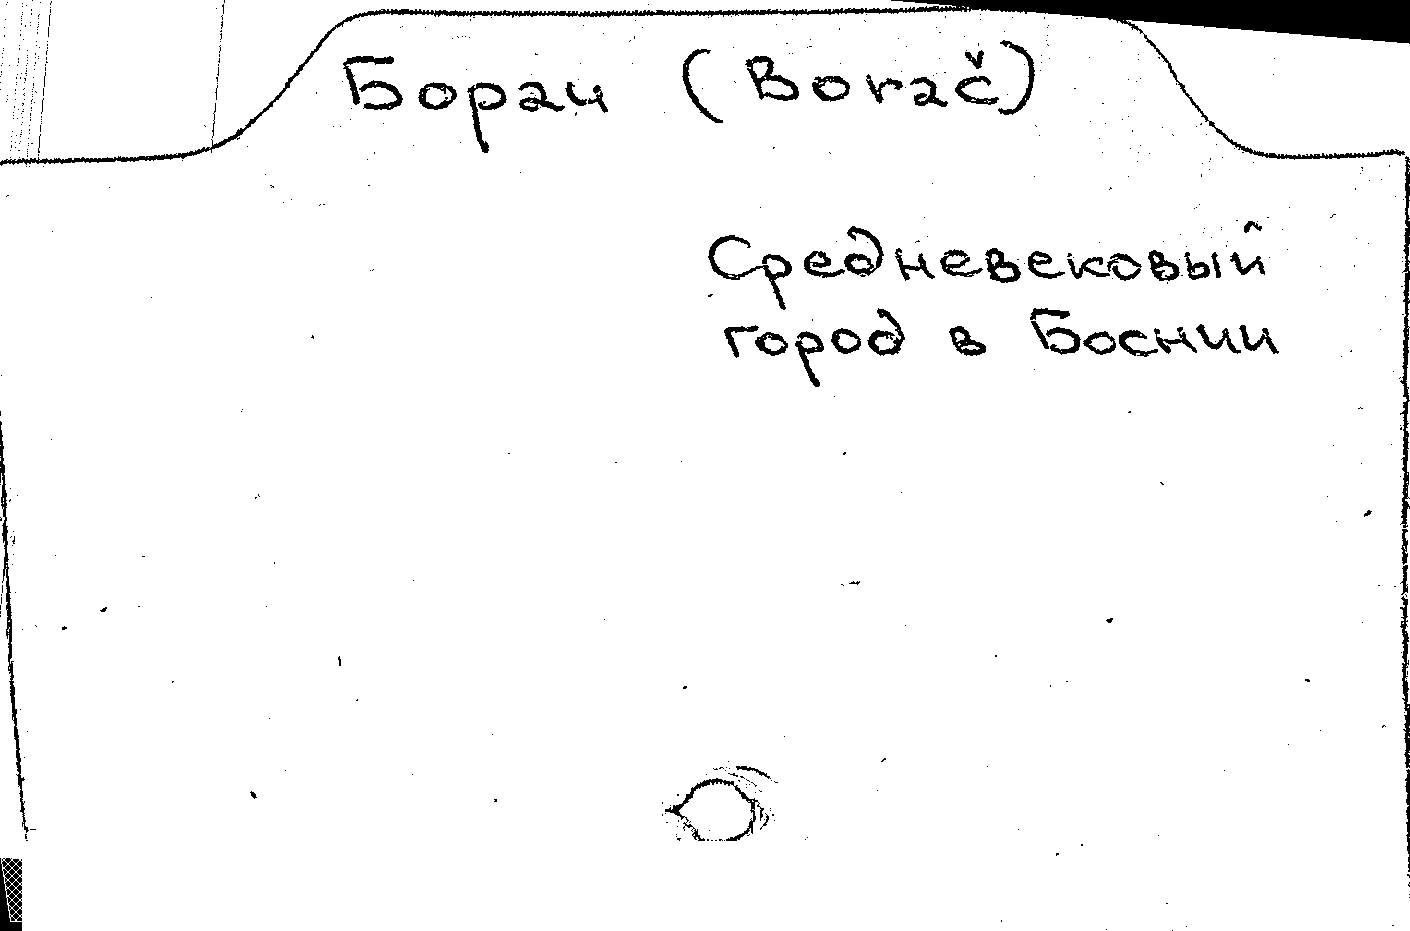 Борач (Borač)
Средневековый
город в Боснии